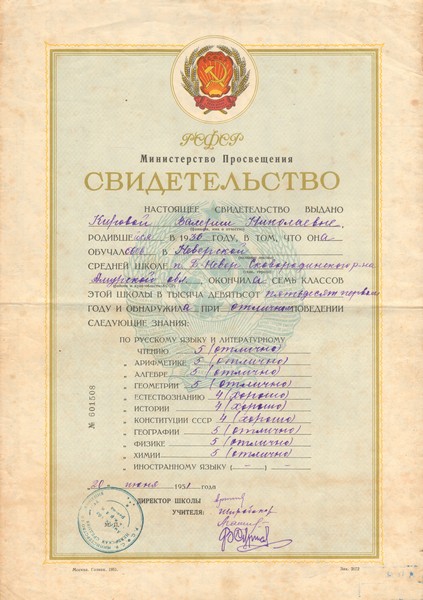 РСФСР
Министерство Просвещения
СВИДЕТЕЛЬСТВО
НАСТОЯЩЕЕ СВИДЕТЕЛЬСТВО ВЫДАНО
Кировой Валерии Николаевне,
РОДИВШЕЙСЯ В 1930 ГОДУ, В ТОМ, ЧТО ОНА
ОБУЧАЛАСЬ В Неверской
СРЕДНЕЙ ШКОЛЕ п. Б-Невер Сковородинского р-на
Амурской обл. ОКОНЧИЛА СЕМЬ КЛАССОВ
ЭТОЙ ШКОЛЫ В ТЫСЯЧА ДЕВЯТЬСОТ пятьдесят первом
ГОДУ И ОБНАРУЖИЛА ПРИ отличном ПОВЕДЕНИИ
СЛЕДУЮЩИЕ ЗНАНИЯ:
ПО РУССКОМУ ЯЗЫКУ И ЛИТЕРАТУРНОМУ
ЧТЕНИЮ 5 (отлично)
„ АРИФМЕТИКЕ 5 (отлично)
„ АЛГЕБРЕ 5 (отлично)
„ ГЕОМЕТРИИ 5 (отлично)
„ ЕСТЕСТВОЗНАНИЮ 4 (хорошо)
„ ИСТОРИИ 4 (хорошо)
„ КОНСТИТУЦИИ СССР 4 (хорошо)
„ ГЕОГРАФИИ 5 (отлично)
„ ФИЗИКЕ 5 (отлично)
„ ХИМИИ 5 (отлично)
„ ИНОСТРАННОМУ ЯЗЫКУ ( – )
№ 601508
20 июня 1951 года
ДИРЕКТОР ШКОЛЫ
УЧИТЕЛЯ:
Москва, Гознак, 1951.